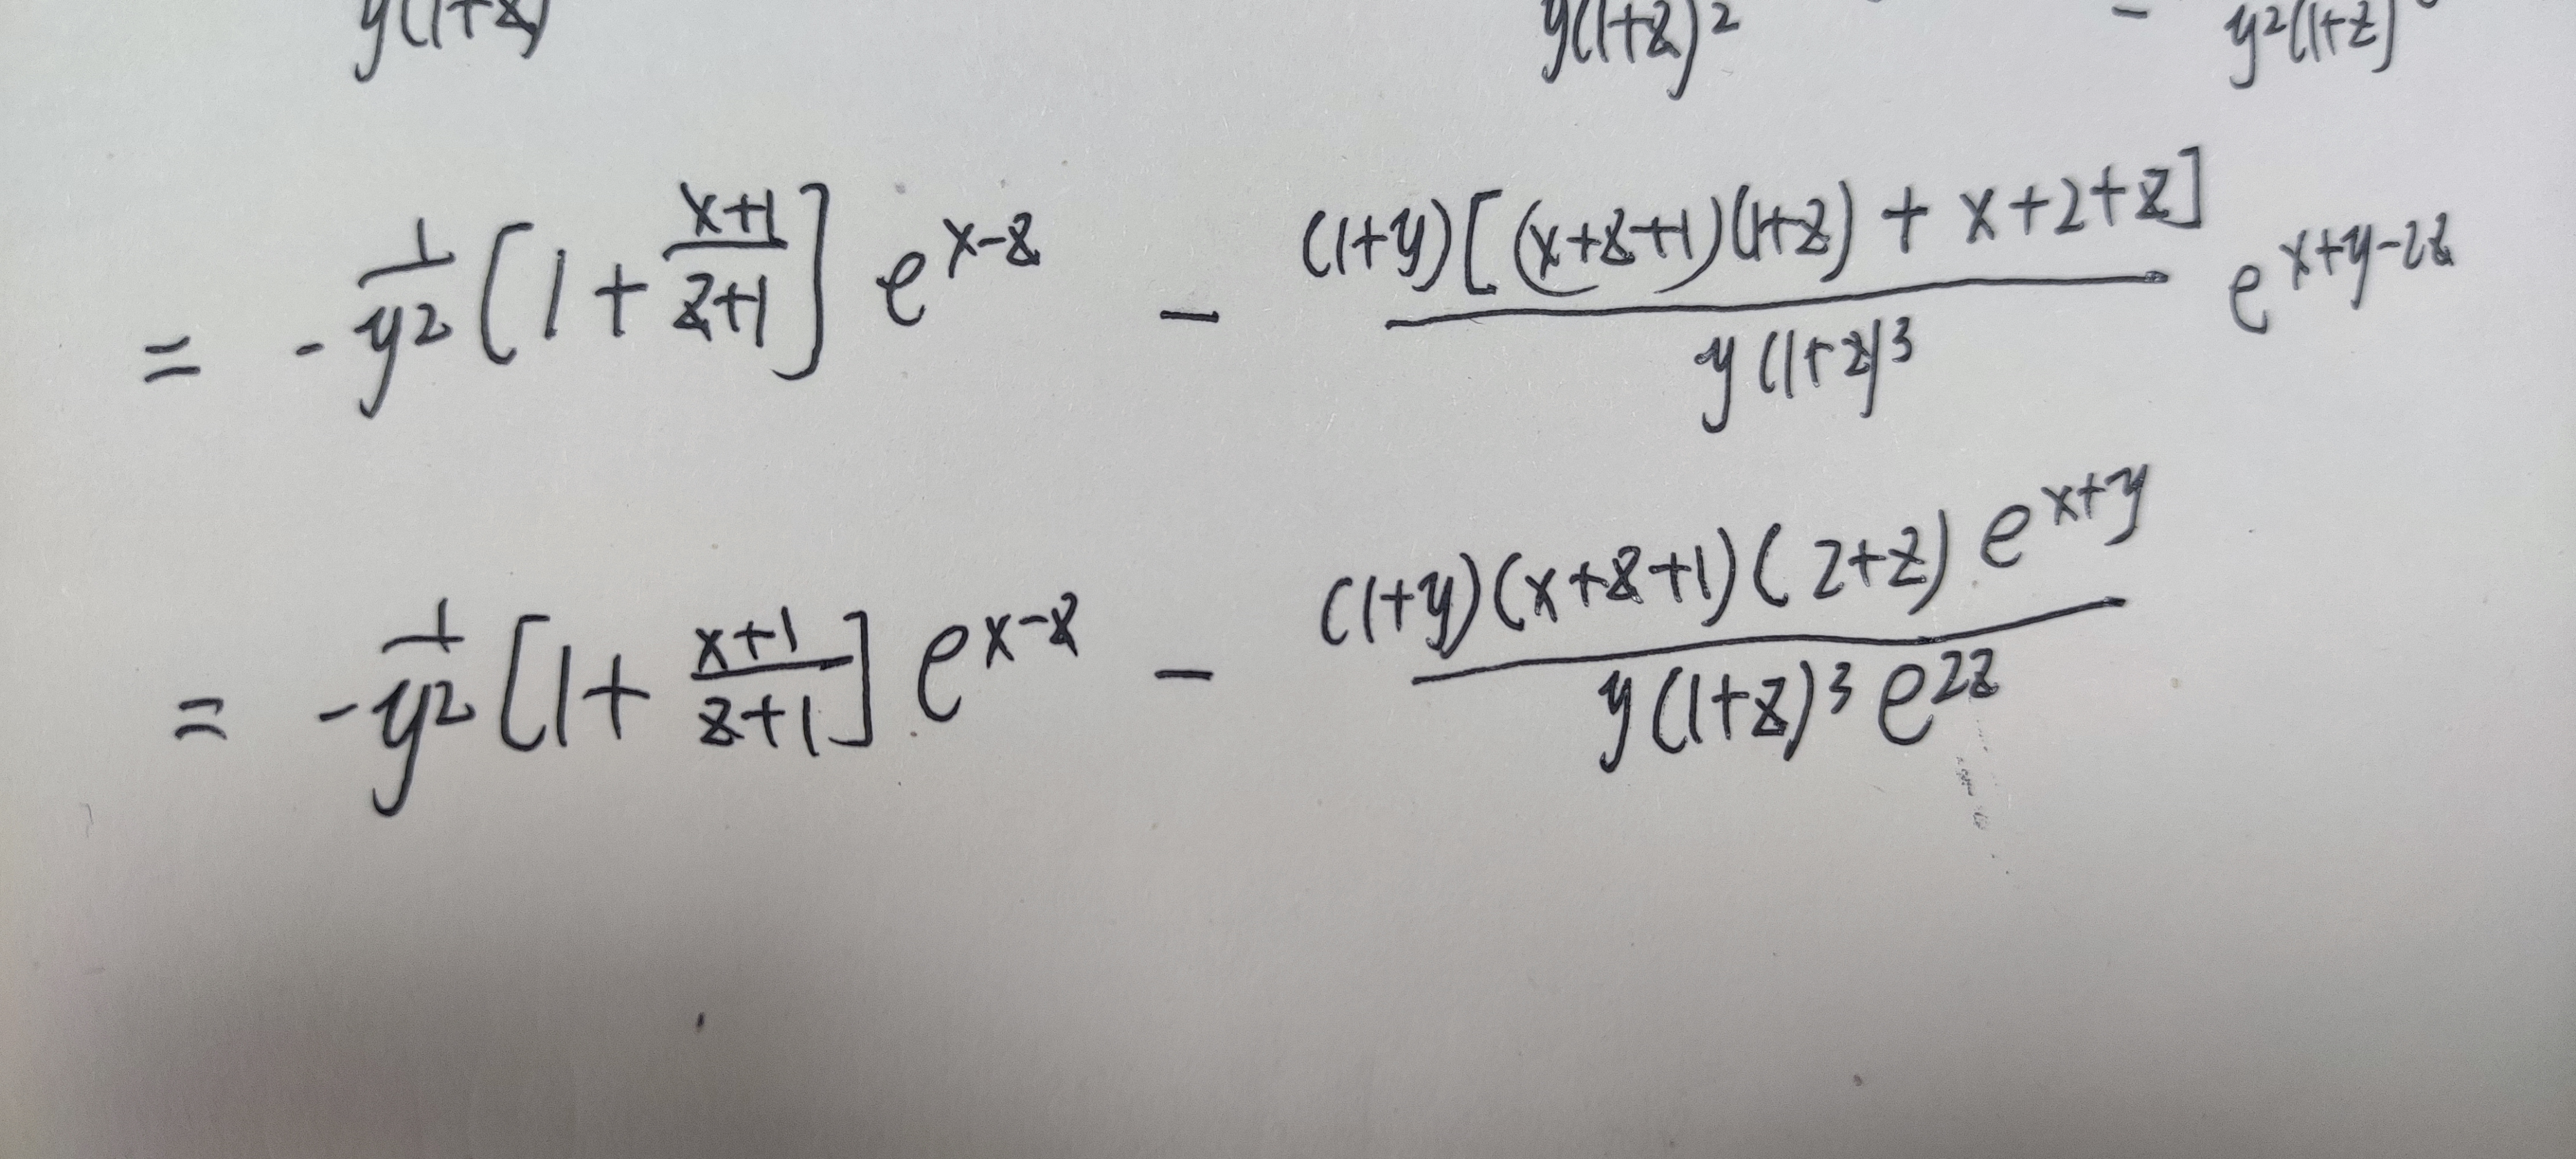 y(1+z) y(1+z)² - y²(1+z)
= - 1/y² [1 + (x+1)/(z+1)] e^(x-z) - (1+y)[(x+z+1)(1+z) + x+2+z] / y(1+z)³ e^(x+y-2z)
= - 1/y² [1 + (x+1)/(z+1)] e^(x-z) - (1+y)(x+z+1)(2+z) e^(x+y) / y(1+z)³ e^(2z)